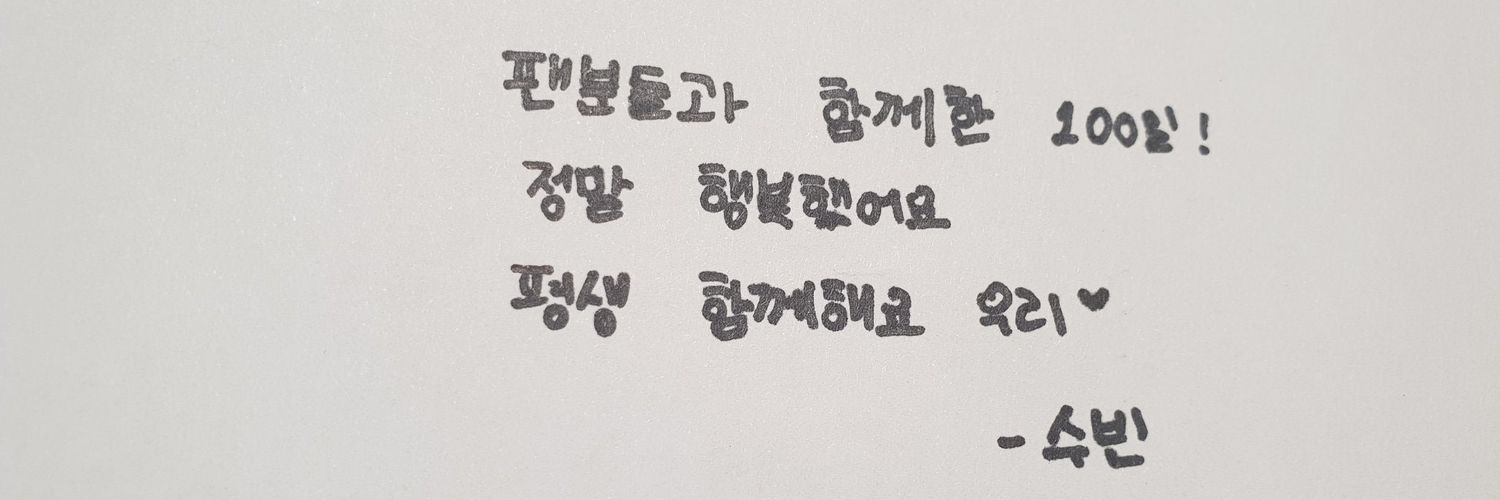 팬분들과 함께한 100일!
정말 행복했어요
평생 함께해요 우리♥
- 수빈